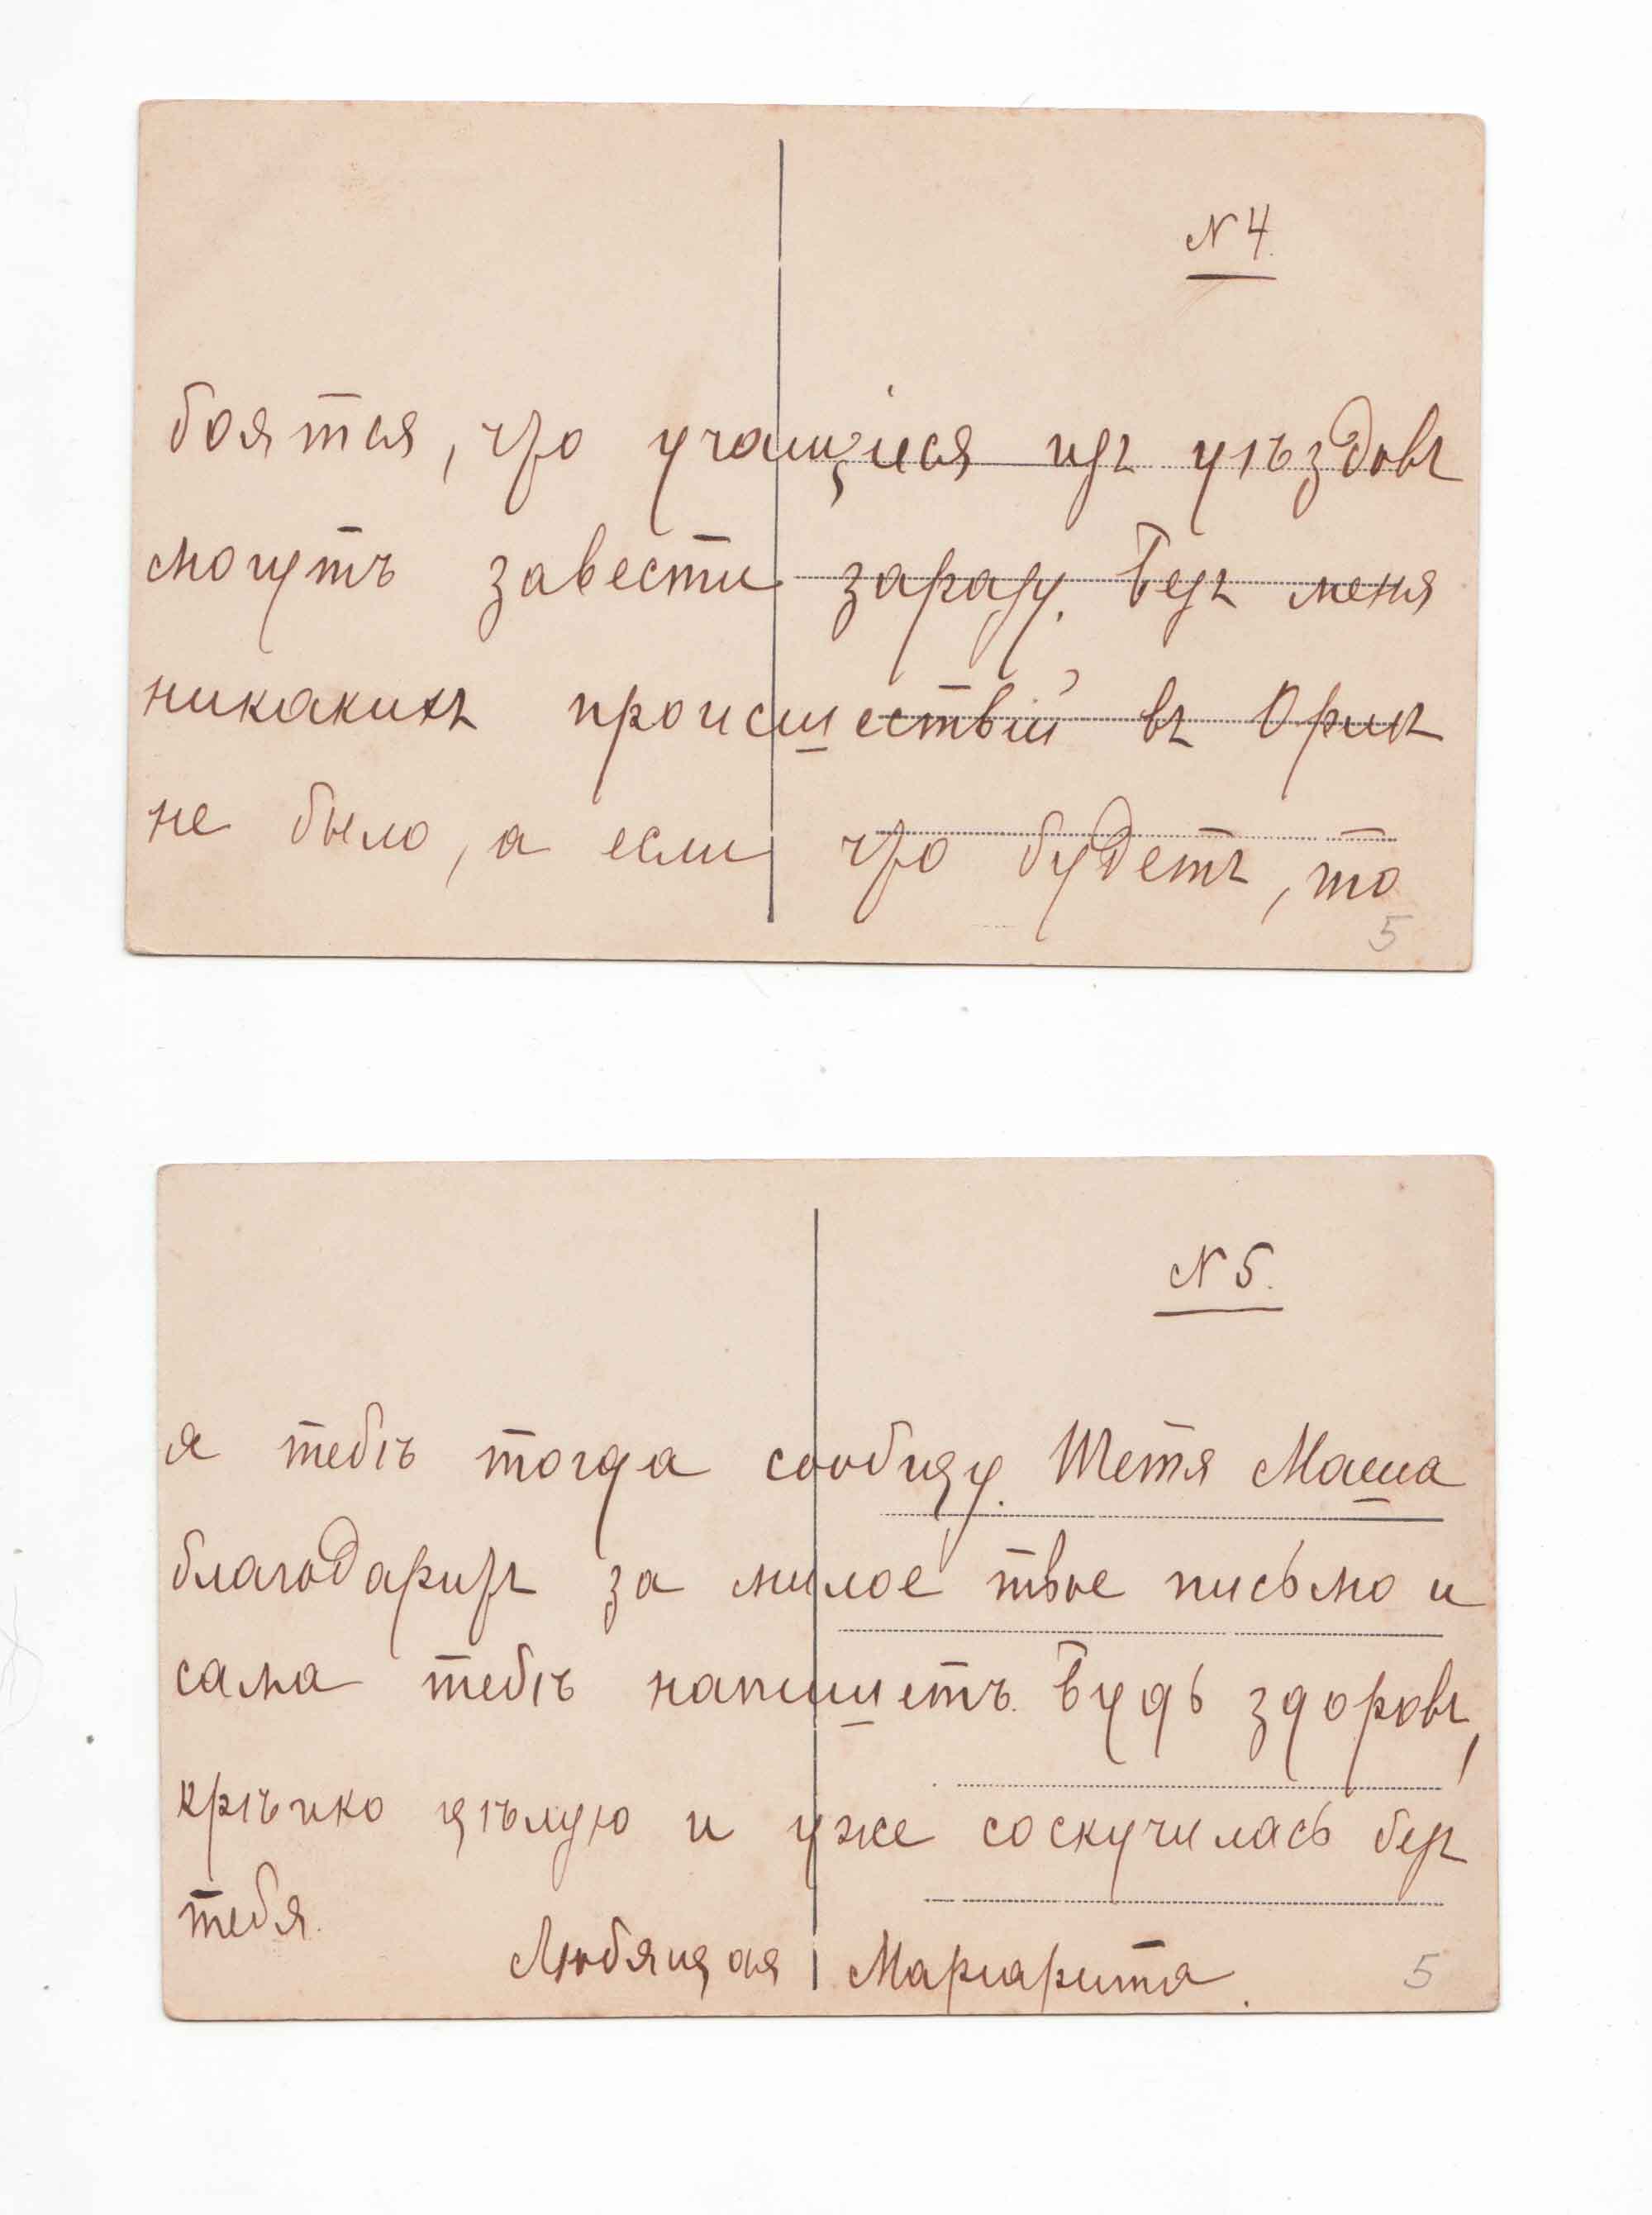 N 4.
боятся, что учащіеся изъ уѣздовъ
могутъ завести заразу. Безъ меня
никакихъ происшествій въ Орлѣ
не было, а если что будетъ, то
5
N 5.
я тебѣ тогда сообщу. Тетя Маша
благодаритъ за милое твое письмо и
сама тебѣ напишетъ. Будь здоровъ,
крѣпко цѣлую и уже соскучилась безъ
тебя.
Любящая Маргарита.
5